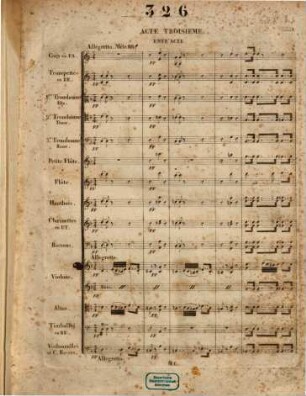 326
ACTE TROISIÈME.
ENTR'ACTE
Allegretto.
Cors en
Trompettes
en
1er Trombone
Alto.
2e Trombone
Tenor.
3e Trombone
Basse.
Petite Flûte.
Flûte.
Hautbois.
Clarinettes
en UT.
Bassons.
Allegretto.
Violons.
Altos.
Timballes
en
Violoncelles
et C. Basses.
Allegretto.